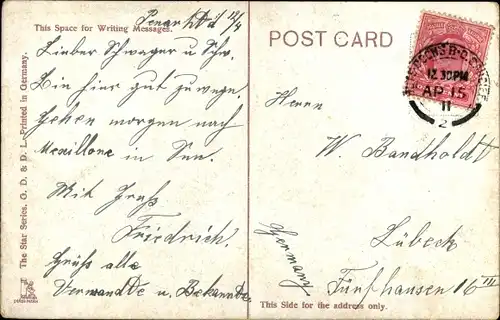 This Space for Writing Messages.
12/4
Lieber Schwager u Schw.
Bin hier gut zuwege.
Gehen morgen nach
Mexillone in See.
Mit Gruß
Friedrich.
Grüß alle
Verwandte u. Bekannte
The Star Series. G. D. & D. L.—Printed in Germany.
POST CARD
12.30PM
AP 15
11
2
Herrn
W. Bandholdt
Lübeck
Fünfhausen 16 III
Germany
This Side for the address only.